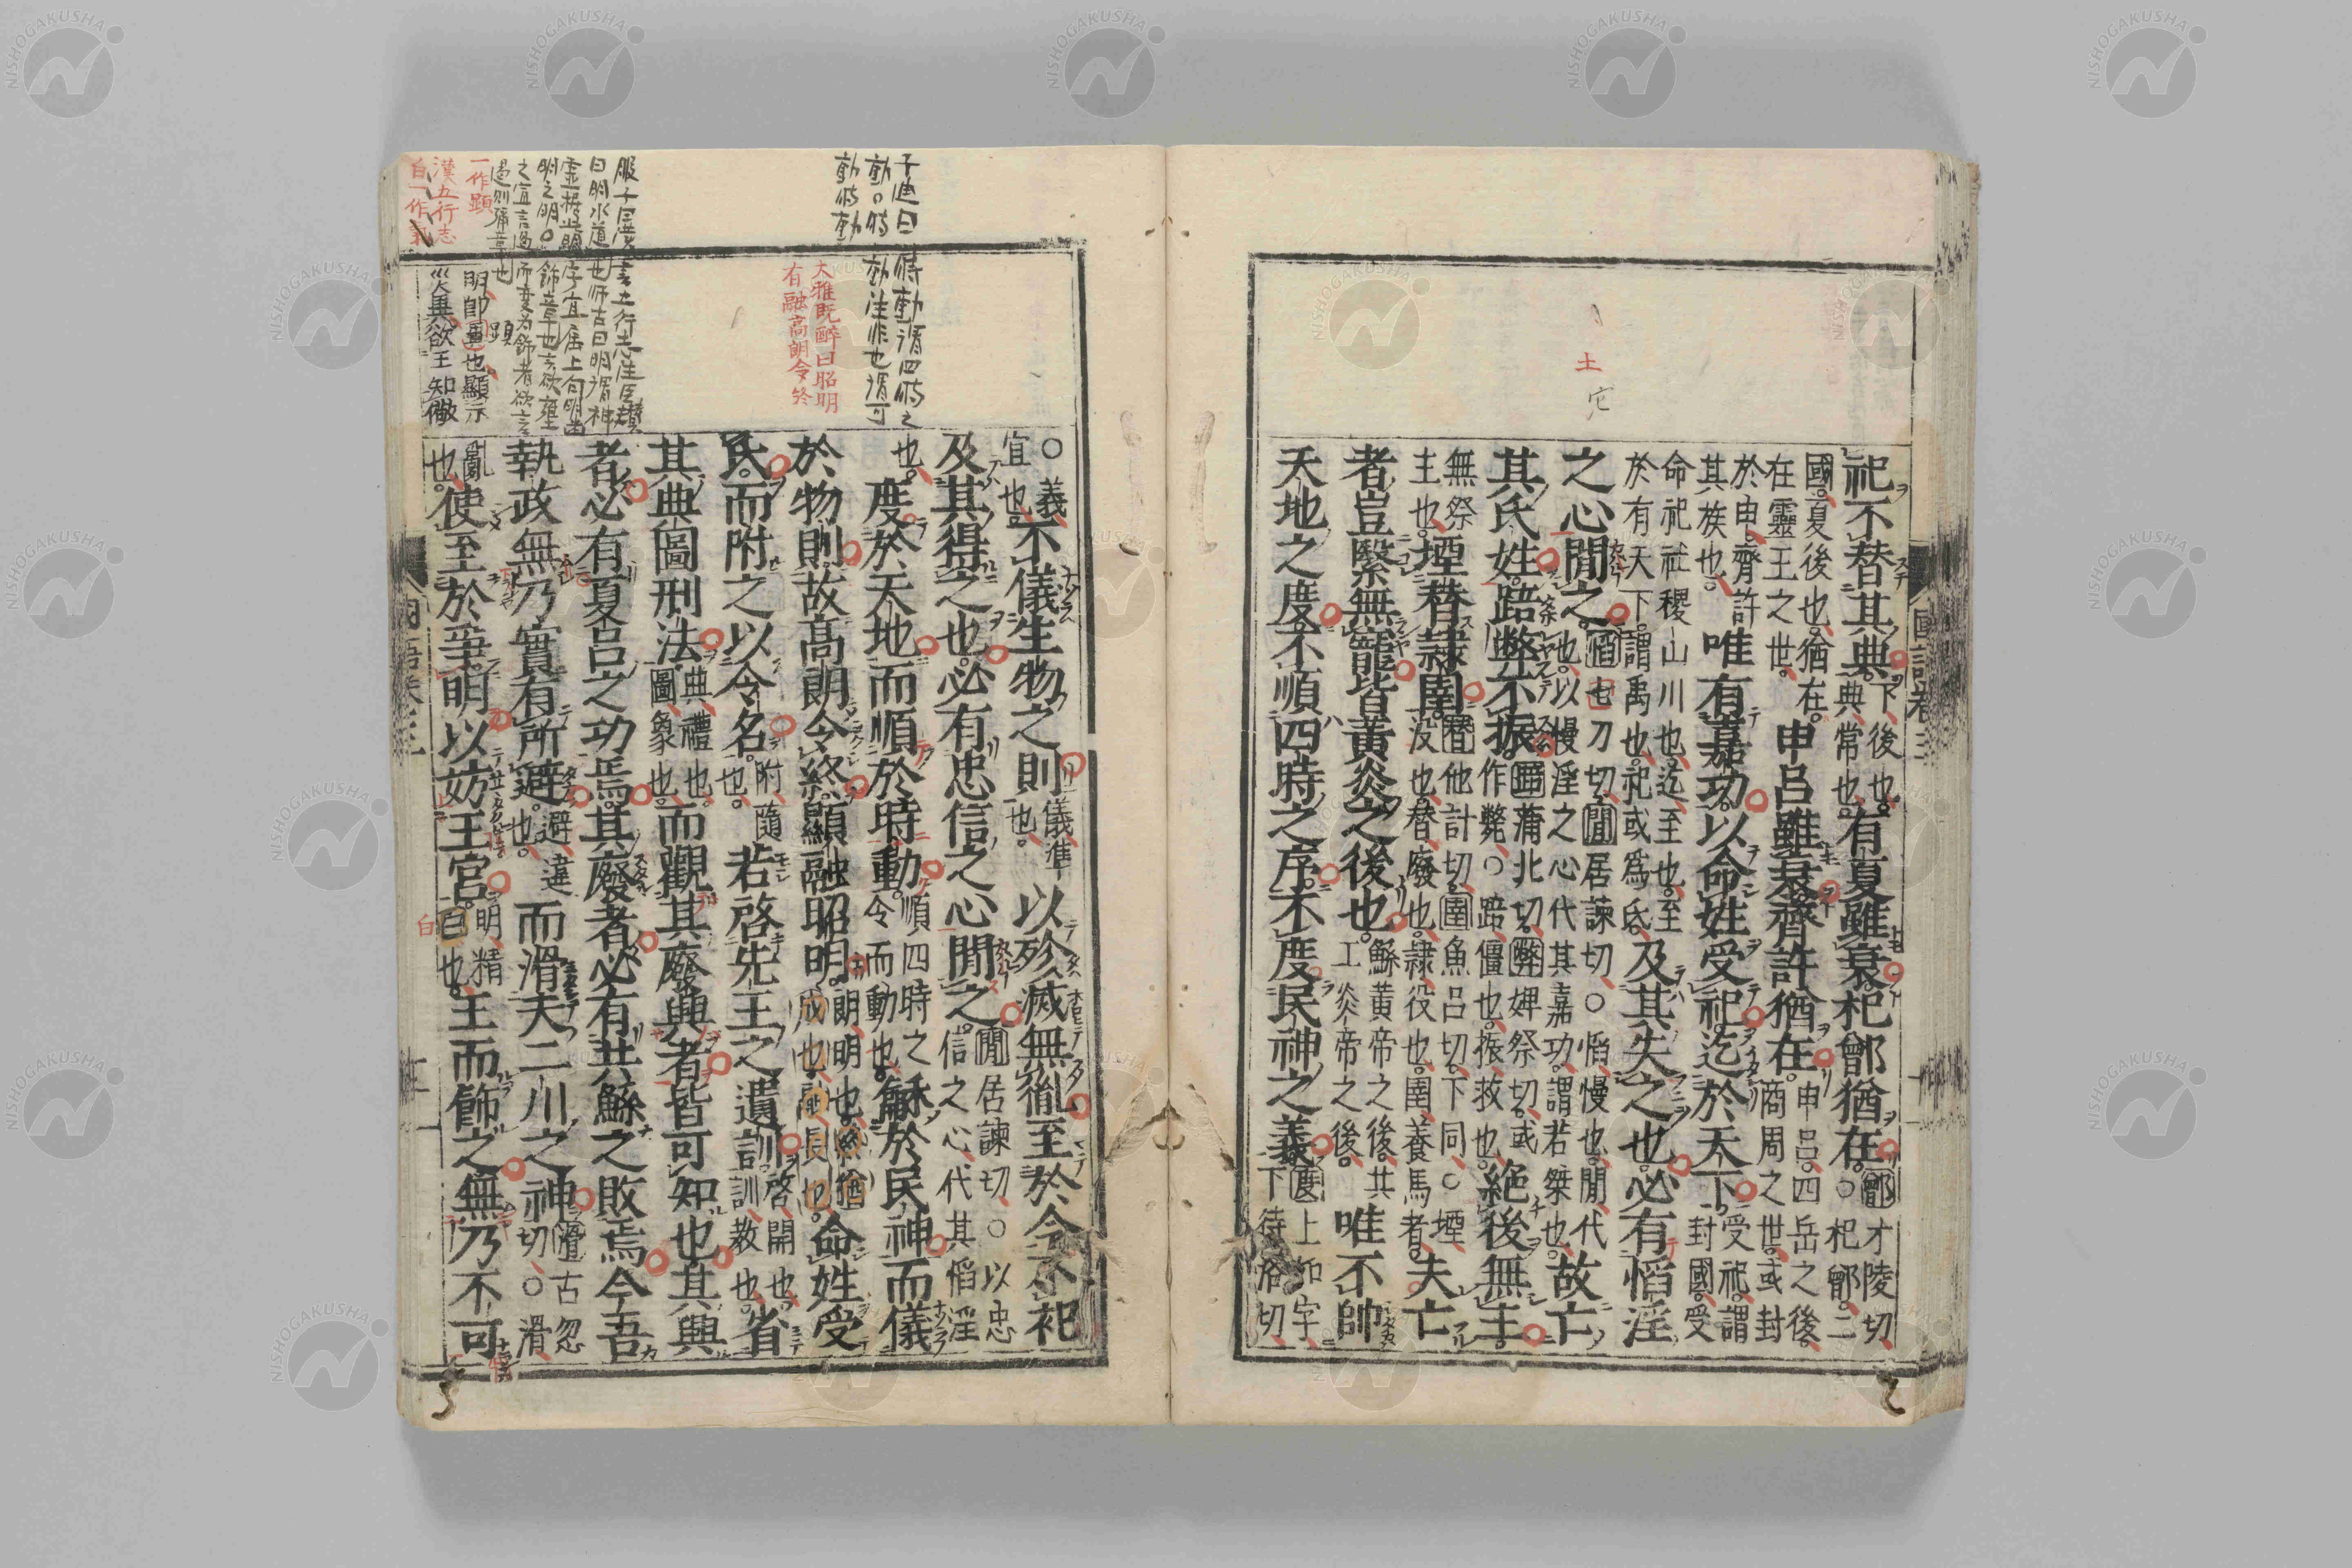 祀不替其典下後也典常也有夏雖衰杞鄫猶在○鄫才陵切杞鄫二
國夏後也猶在在靈王之世申呂雖衰齊許猶在申呂四岳之後商周之世或封
於申齊許其族也唯有嘉功以命姓受祀迄於天下受祀謂封國受
命祀社稷山川也迄至也至於有天下謂禹也祀或爲氏及其失之也必有慆淫
之心閒之慆七刀切閒居諫切○慆慢也閒代也以慢淫之心代其嘉功謂若桀也故亡
其氏姓踣弊不振踣蒲北切弊婢祭切或作斃○踣僵也振救也絕後無主
無祭主也堙替隸圉替他計切圉魚呂切下同○堙沒也替廢也隸役也圉養馬者夫亡
者豈繄無寵皆黃炎之後也鯀黃帝之後共工炎帝之後唯不帥
天地之度不順四時之序不度民神之義度上如字下待洛切
○義宜也不儀生物之則儀準也以殄滅無胤至於今不祀
及其得之也必有忠信之心閒之閒居諫切○以忠信之心代其慆淫
也度於天地而順於時動順四時之令而動也龢於民神而儀
於物則故高朗令終顯融昭明朗明也終猶成也融長也命姓受
氏而附之以令名附隨也若啓先王之遺訓啓開也訓教也省
其典圖刑法典禮也圖象也而觀其廢興者皆可知也其興
者必有夏呂之功焉其廢者必有共鯀之敗焉今吾
執政無乃實有所避避違也而滑夫二川之神滑古忽切○滑
亂也使至於爭明以妨王宮明精白也王而飾之無乃不可
國語卷三
土
它
子迪曰時動謂四時之
動○時動注非也謂可
動時動
大雅既醉曰昭明
有融高朗令終
一作顯
漢五行志